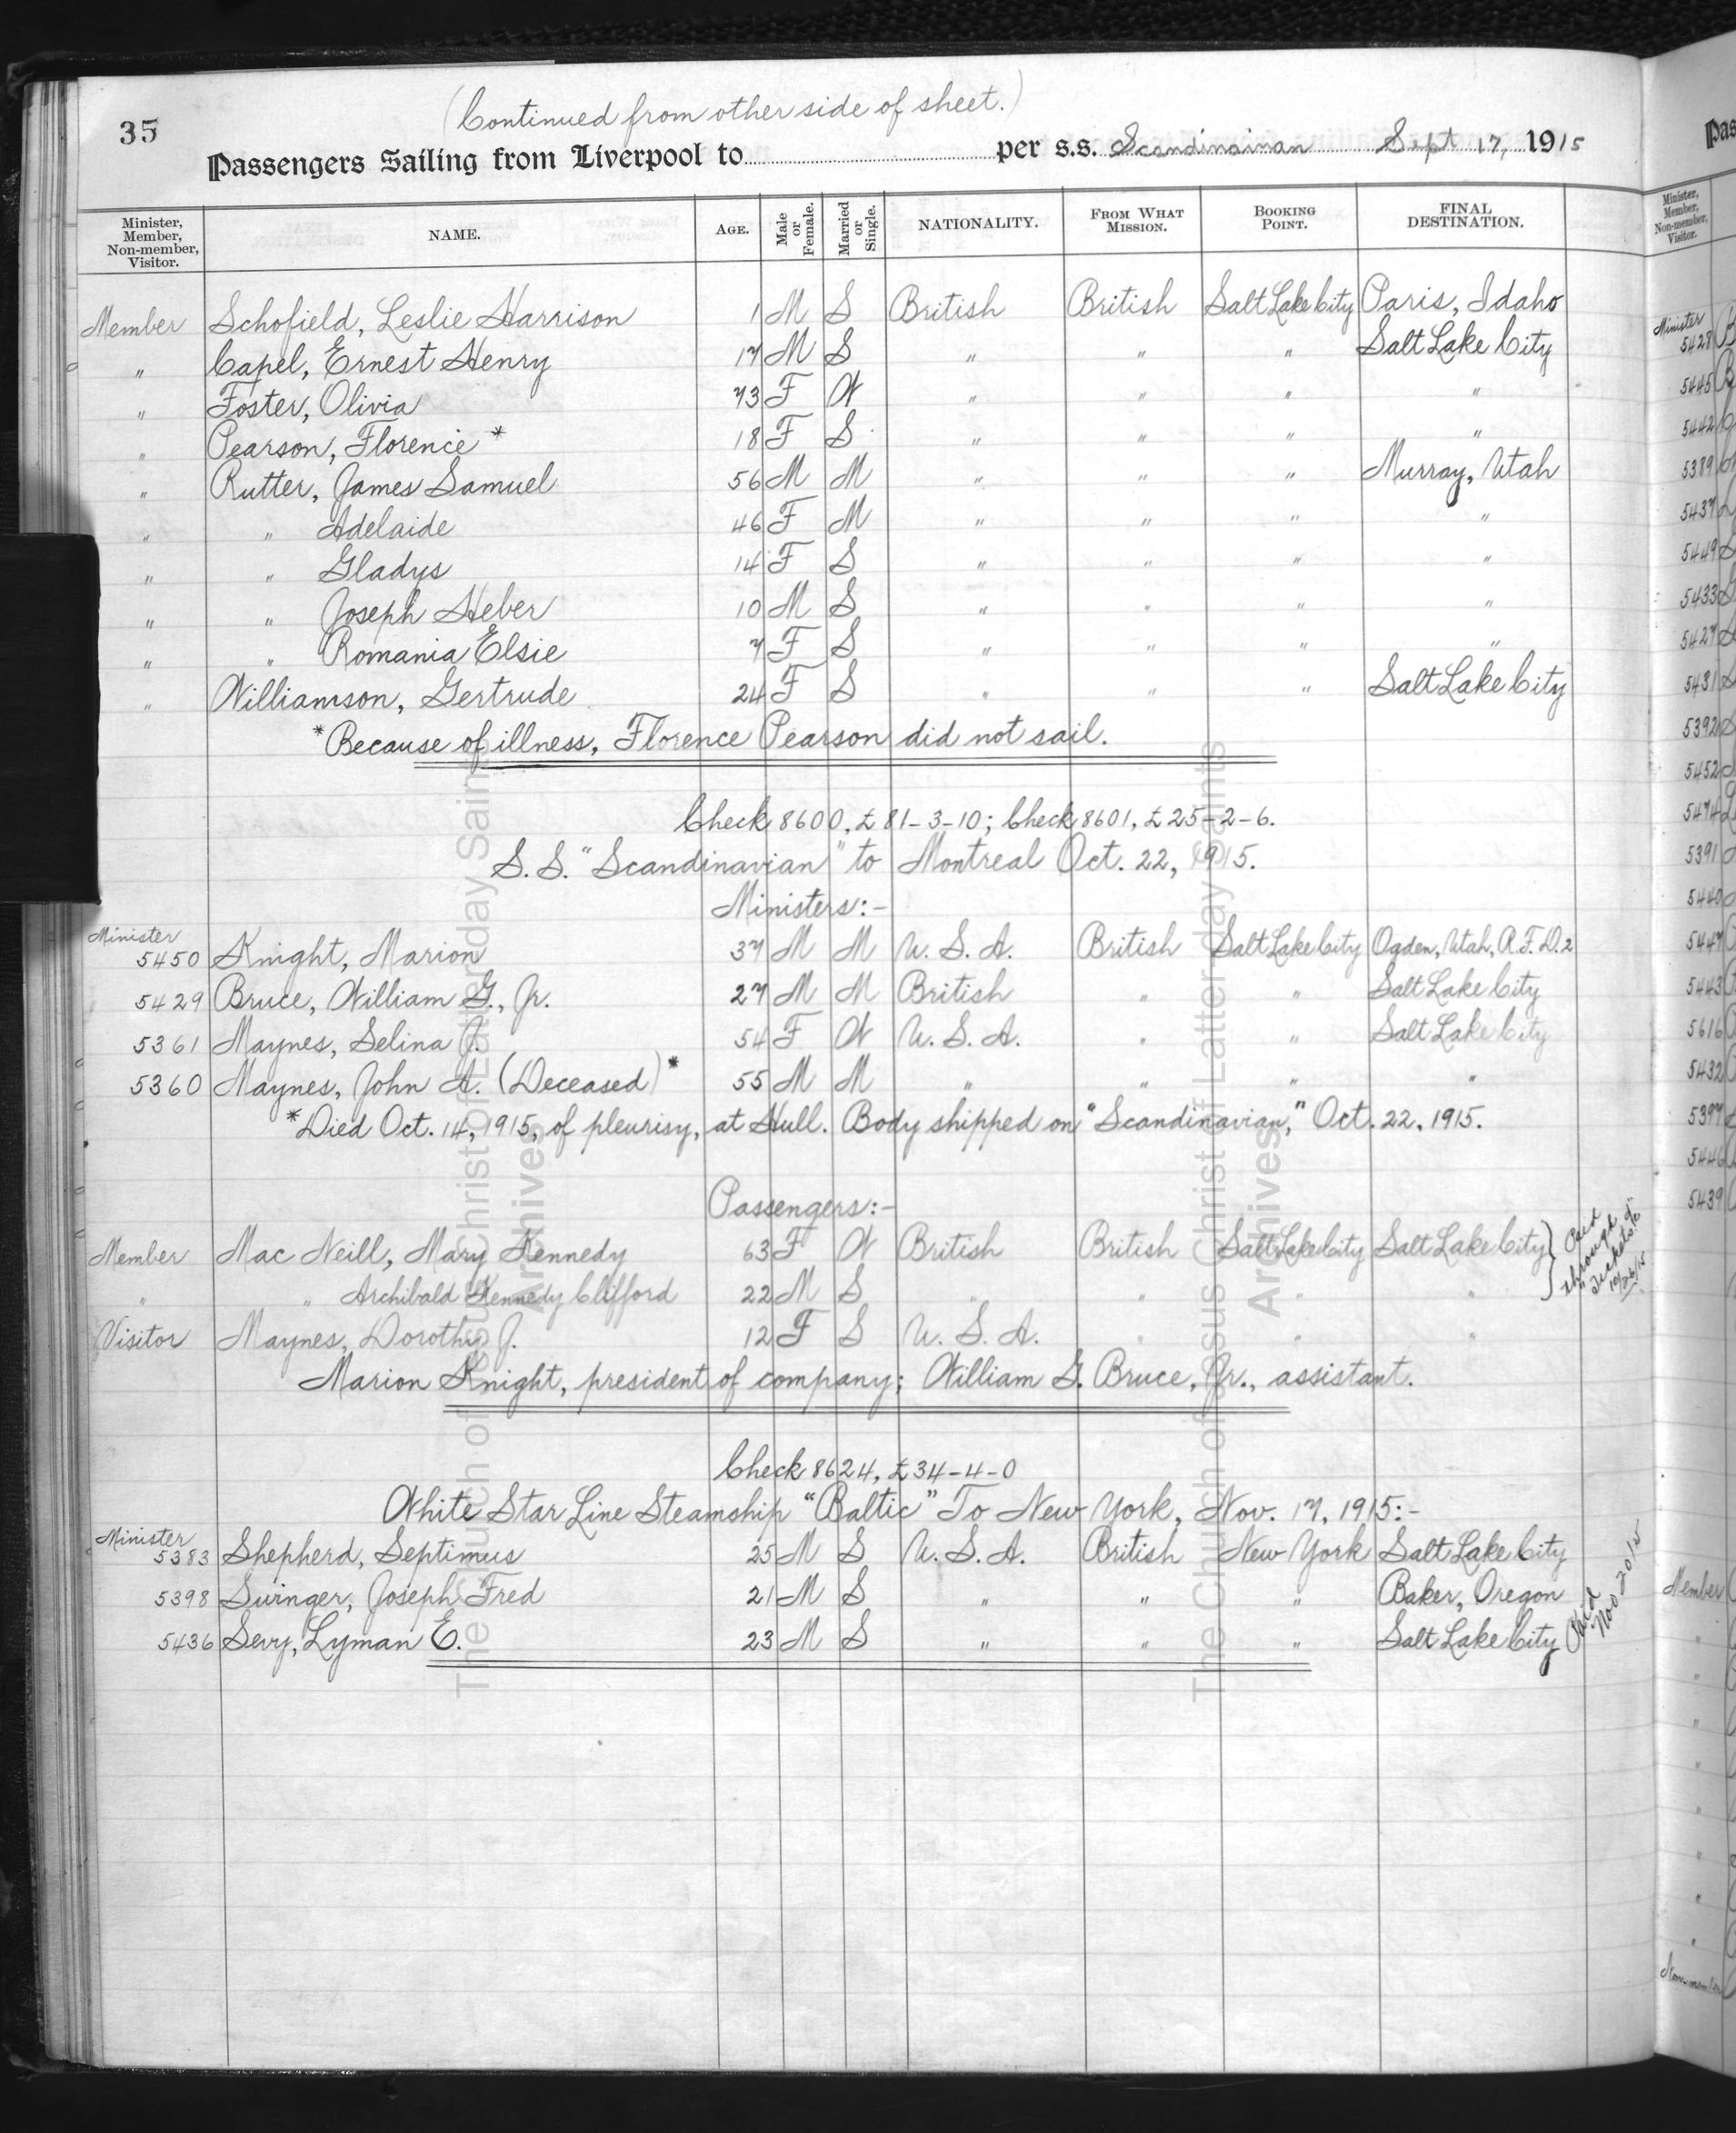 (Continued from other side of sheet.)
35
Passengers Sailing from Liverpool to per s.s. Scandinainan Sept 17, 1915
Minister, Member, Non-member, Visitor. NAME. AGE. Male or Female. Married or Single. NATIONALITY. FROM WHAT MISSION. BOOKING POINT. FINAL DESTINATION.
Member Schofield, Leslie Harrison 1 M S British British Salt Lake City Paris, Idaho
" Capel, Ernest Henry 17 M S " " " Salt Lake City
" Foster, Olivia 73 F W " " " "
" Pearson, Florence * 18 F S " " " "
" Rutter, James Samuel 56 M M " " " Murray, Utah
" " Adelaide 46 F M " " " "
" " Gladys 14 F S " " " "
" " Joseph Heber 10 M S " " " "
" " Romania Elsie 7 F S " " " "
" Williamson, Gertrude 24 F S " " " Salt Lake City
*Because of illness, Florence Pearson did not sail.
Check 8600, £81-3-10; Check 8601, £25-2-6.
S.S. "Scandinavian" to Montreal Oct. 22, 1915.
Ministers:-
Minister
5450 Knight, Marion 37 M M U.S.A. British Salt Lake City Ogden, Utah, R.F.D.2
5429 Bruce, William G., Jr. 27 M M British " " Salt Lake City
5361 Maynes, Selina J. 54 F W U.S.A. " " Salt Lake City
5360 Maynes, John A. (Deceased)* 55 M M " " " "
*Died Oct. 14, 1915, of pleurisy, at Hull. Body shipped on "Scandinavian," Oct. 22, 1915.
Passengers:-
Member Mac Neill, Mary Kennedy 63 F W British British Salt Lake City Salt Lake City
" " Archibald Kennedy Clifford 22 M S " " " "
Paid through
10/26/15
Visitor Maynes, Dorothy J. 12 F S U.S.A. " " "
Marion Knight, president of company; William G. Bruce, Jr., assistant.
Check 8624, £34-4-0
White Star Line Steamship "Baltic" To New York, Nov. 17, 1915:-
Minister
5383 Shepherd, Septimus 25 M S U.S.A. British New York Salt Lake City
5398 Swinger, Joseph Fred 21 M S " " " Baker, Oregon
5436 Sevy, Lyman E. 23 M S " " " Salt Lake City
Paid Nov 20 15
The Church of Jesus Christ of Latter-day Saints
Archives
The Church of Jesus Christ of Latter-day Saints
Archives
Pas
Minister, Member, Non-member, Visitor.
Minister
5428
5445
5442
5389
5437
5449
5433
5427
5431
5392
5452
5474
5391
5440
5447
5443
5616
5432
5397
5446
5439
Member
"
"
"
"
"
"
"
"
Non-member